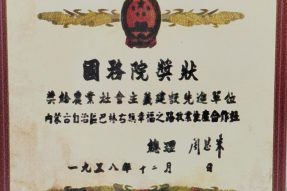 國務院獎狀
獎給農業社會主義建設先進單位
內蒙古自治區巴林右旗幸福之路牧業生產合作社
總理 周恩來
一九五八年十二月 日